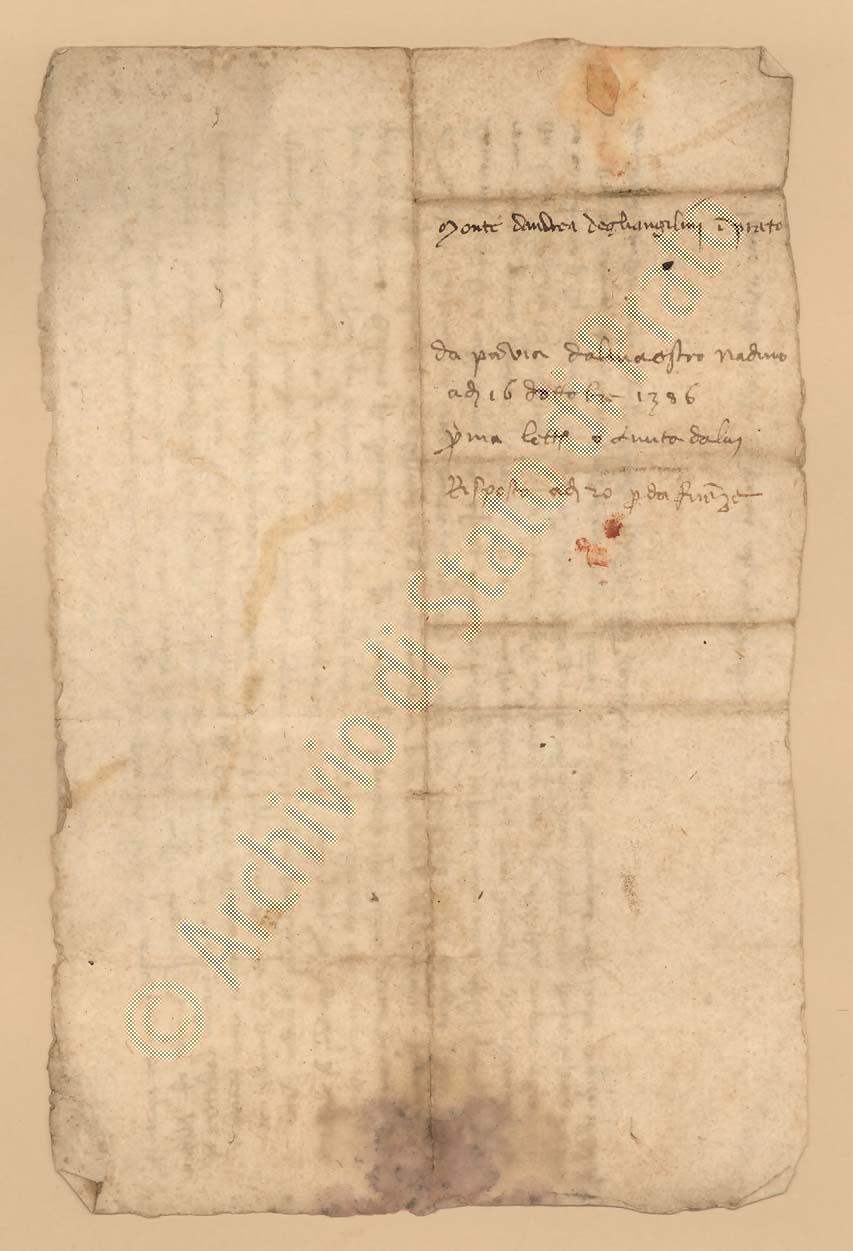 Monte dandrea degliangiolini i prato
da pavia dalmaestro nadino
adj 16 dottobre 1386
p̄ma lett auuta daluj
Risposto adj 20 p da firēze
© Archivio di Stato di Prato